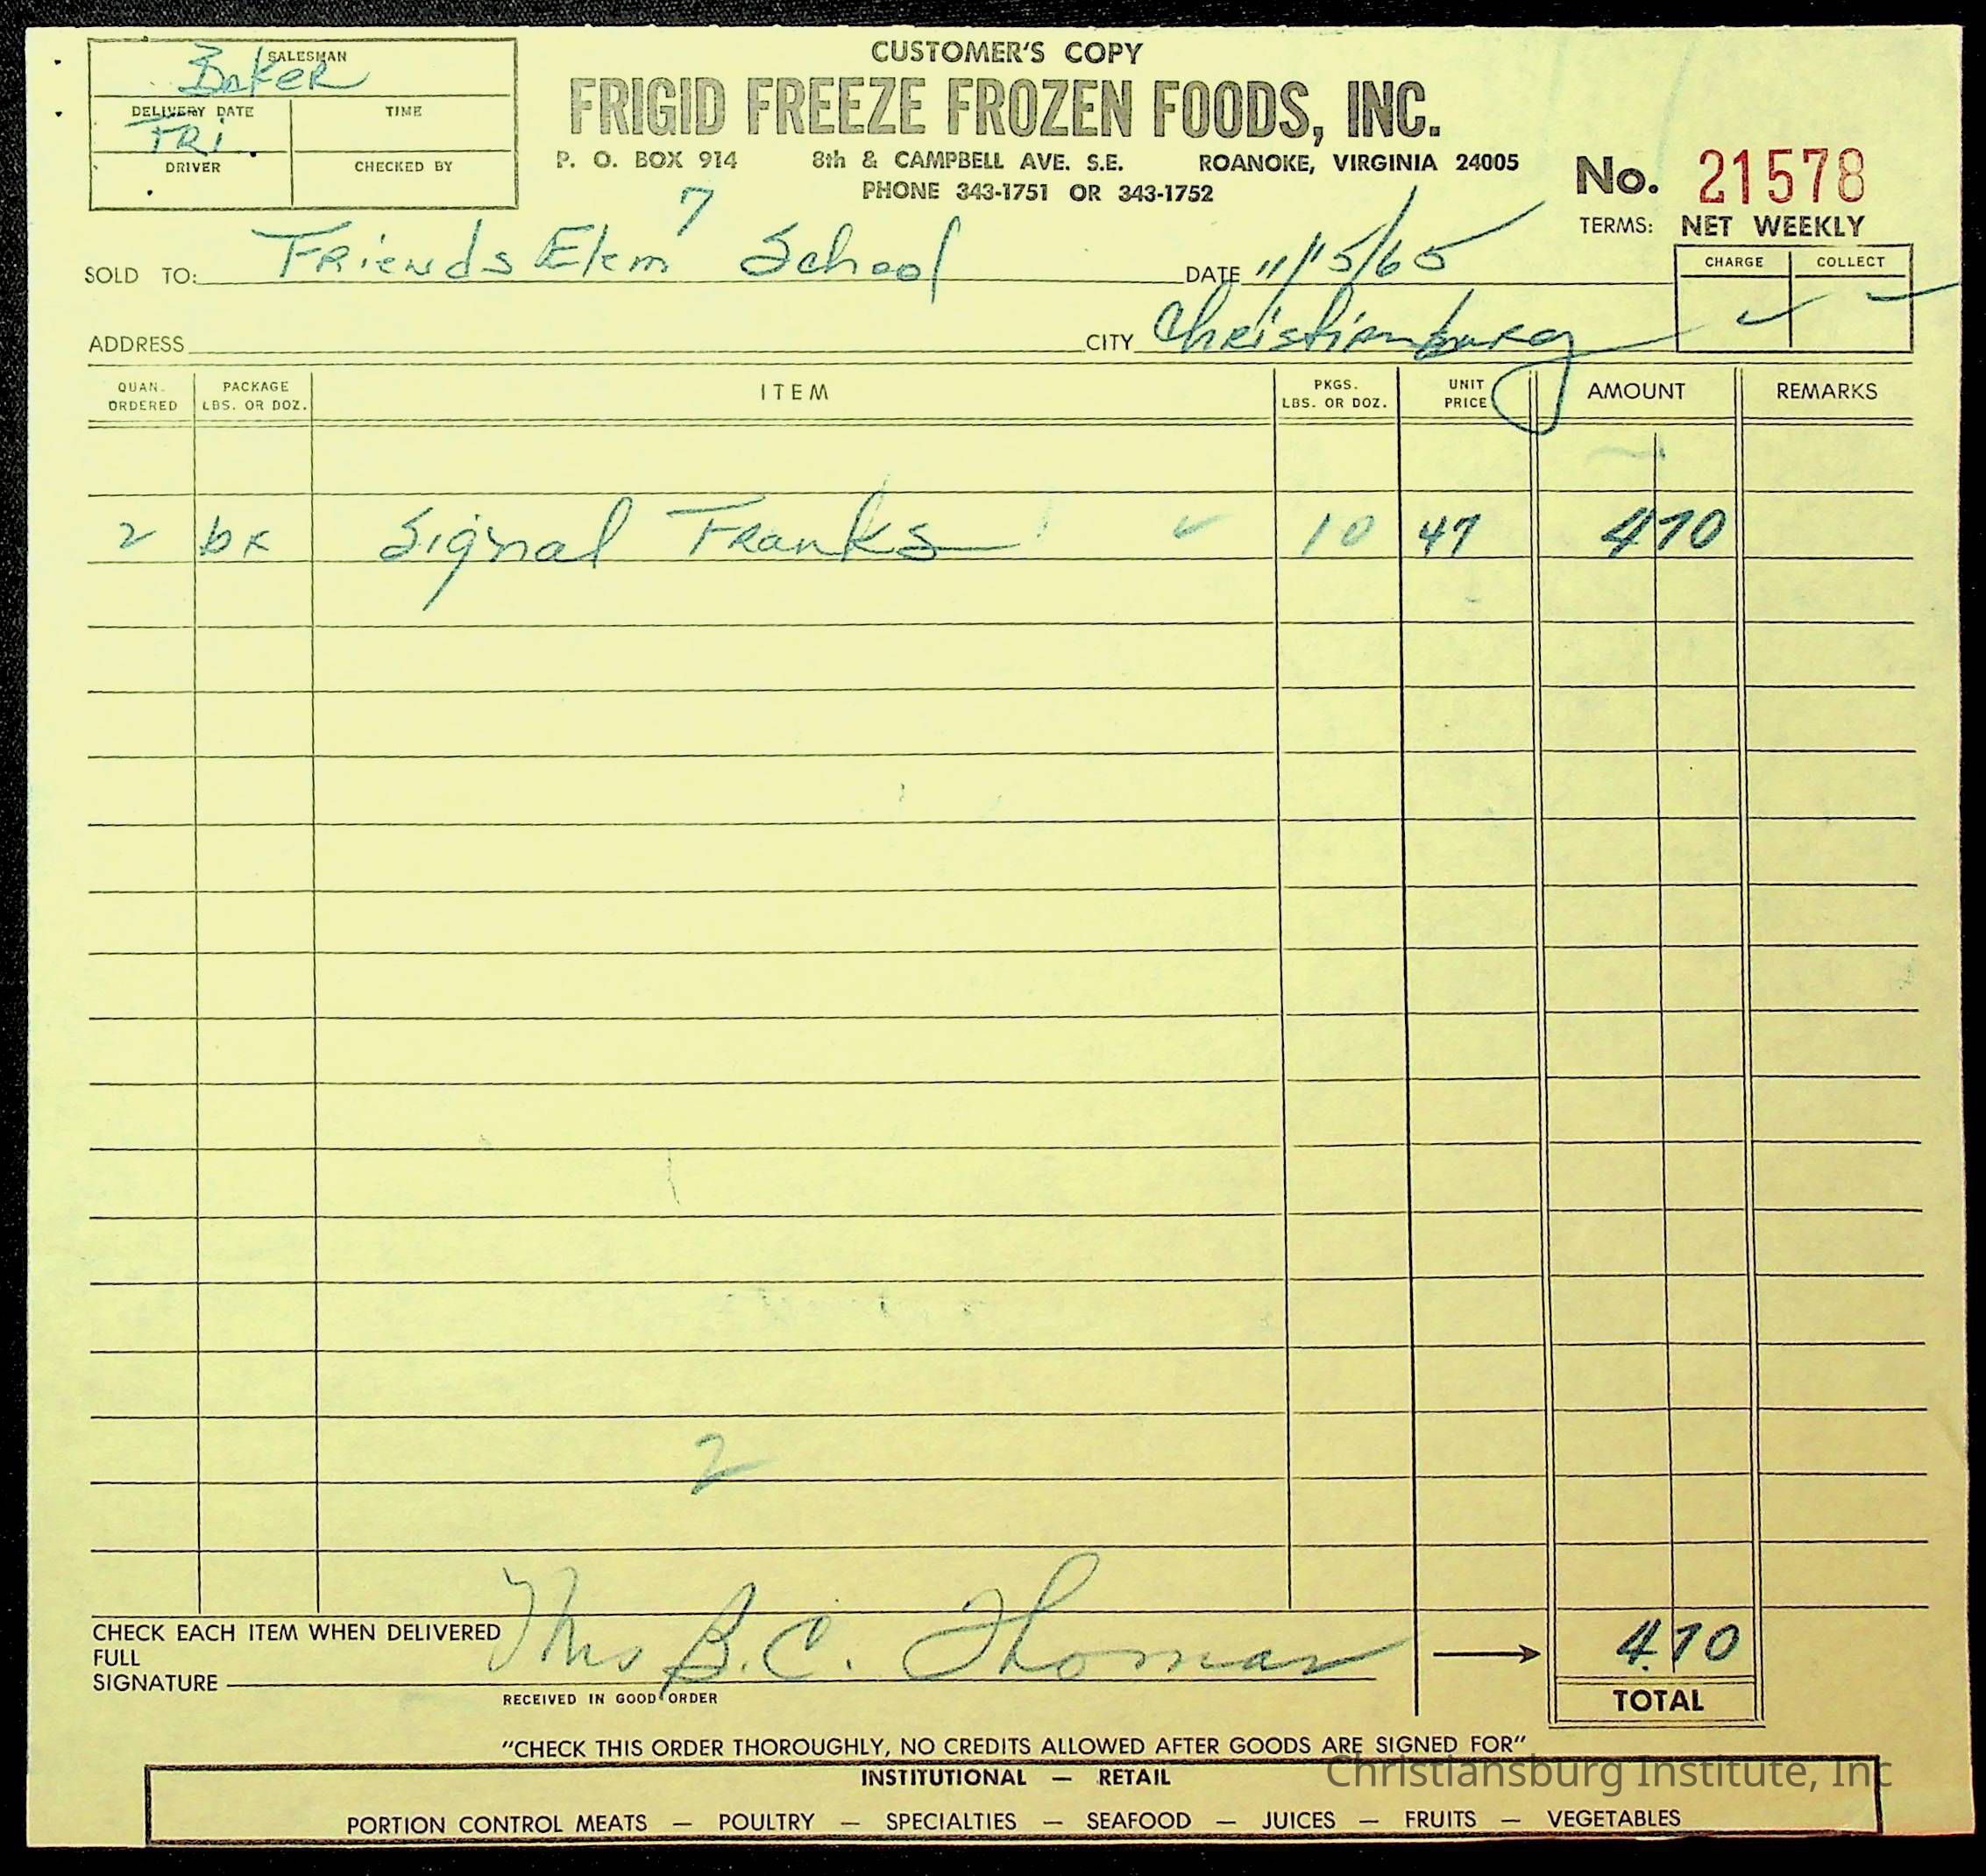 CUSTOMER'S COPY
SALESMAN
Baker
DELIVERY DATE TIME
FRi.
DRIVER CHECKED BY
FRIGID FREEZE FROZEN FOODS, INC.
P. O. BOX 914 8th & CAMPBELL AVE. S.E. ROANOKE, VIRGINIA 24005
PHONE 343-1751 OR 343-1752
No. 21578
TERMS: NET WEEKLY
7
SOLD TO: Friends Elem School DATE 11/15/65
CHARGE COLLECT
✓ ✓
ADDRESS CITY Christianburg
QUAN. ORDERED PACKAGE LBS. OR DOZ. ITEM PKGS. LBS. OR DOZ. UNIT PRICE AMOUNT REMARKS
2 bx Signal Franks ✓ 10 47 4 70
2
CHECK EACH ITEM WHEN DELIVERED
FULL
SIGNATURE Mrs B.C. Thomas 4.70
RECEIVED IN GOOD ORDER TOTAL
"CHECK THIS ORDER THOROUGHLY, NO CREDITS ALLOWED AFTER GOODS ARE SIGNED FOR"
Christiansburg Institute, Inc
INSTITUTIONAL — RETAIL
PORTION CONTROL MEATS — POULTRY — SPECIALTIES — SEAFOOD — JUICES — FRUITS — VEGETABLES